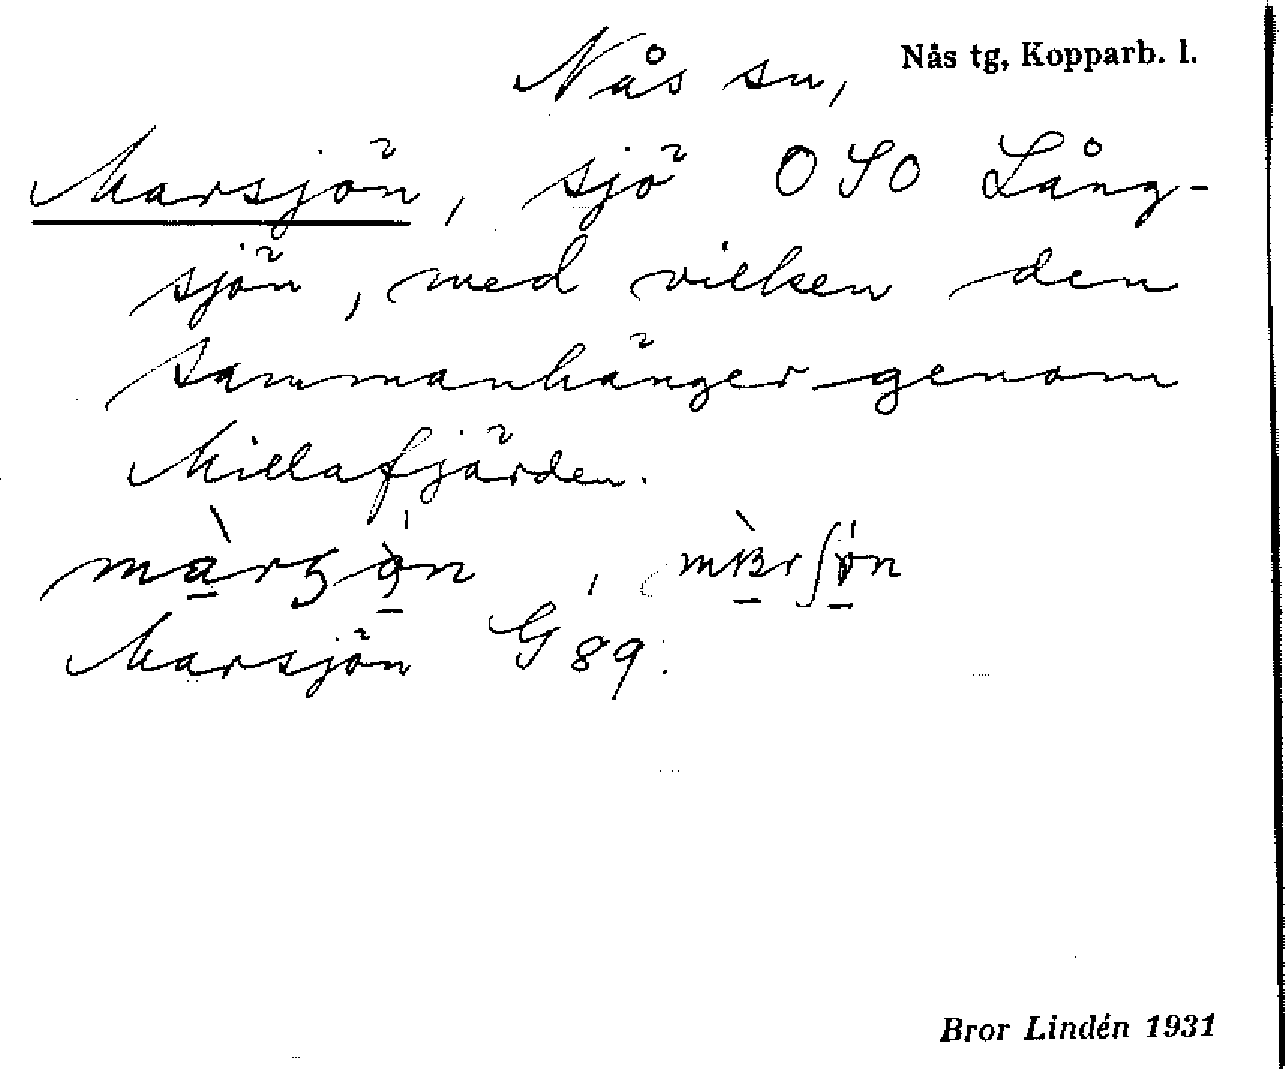 Nås sn, Nås tg, Kopparb. l.
Marsjön, sjö OSO Lång-
sjön, med vilken den
sammanhänger genom
Millafjärden.
Marsjön G 89.
Bror Lindén 1931